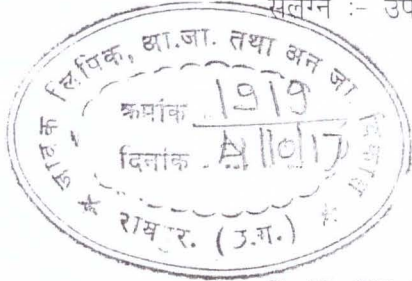 संलग्न :- उप
जावक लिपिक, आ.जा. तथा अन जा विकास
क्रमांक 1919
दिनांक
रायपुर. (छ.ग.)